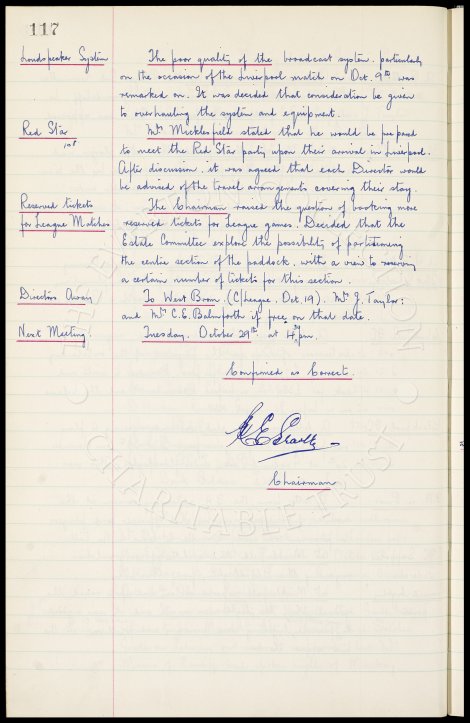 117
Loudspeaker System The poor quality of the broadcast system, particularly
on the occasion of the Liverpool match on Oct. 9th was
remarked on. It was decided that consideration be given
to overhauling the system and equipment.
Red Star Mr. Micklesfield stated that he would be prepared
108 to meet the Red Star party upon their arrival in Liverpool.
After discussion, it was agreed that each Director would
be advised of the travel arrangements covering their stay.
Reserved tickets The Chairman raised the question of booking more
for League Matches reserved tickets for League games. Decided that the
Estate Committee explore the possibility of partitioning
the centre section of the paddock, with a view to reserving
a certain number of tickets for this section.
Directors Away To West Brom. (C/League. Oct 19). Mr. J. Taylor:
and Mr. C.E. Balmforth if free on that date.
Next Meeting Tuesday, October 29th at pm.
Confirmed as Correct.
Chairman
CHARITABLE TRUST